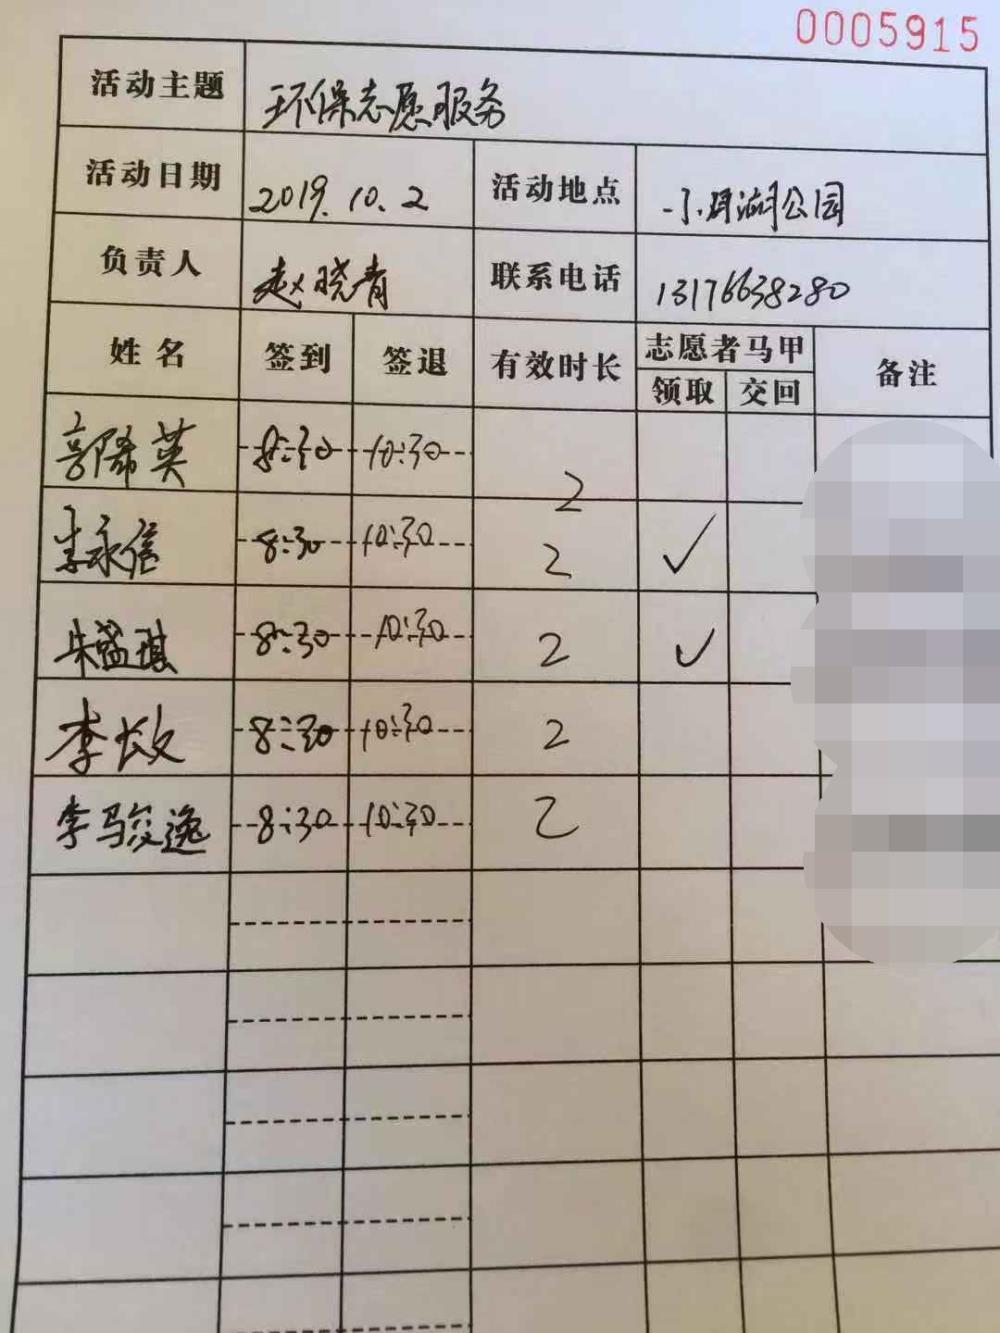 0005915
活动主题 环保志愿服务
活动日期 2019.10.2 活动地点 小月湖公园
负责人 赵晓青 联系电话 13176638280
姓名 签到 签退 有效时长 志愿者马甲 备注
领取 交回
郭希英 8:30 10:30 2
李永信 8:30 10:30 2 ✓
朱盛琪 8:30 10:30 2 ✓
李 8:30 10:30 2
李骏逸 8:30 10:30 2